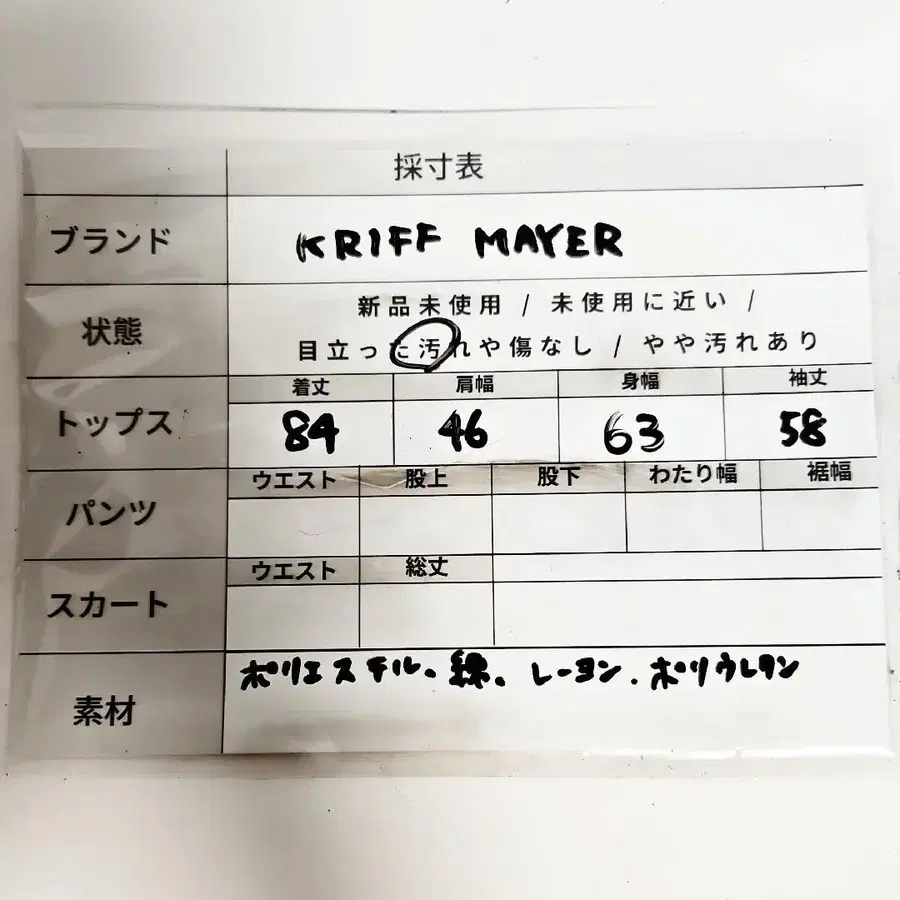 採寸表
ブランド KRIFF MAYER
状態 新品未使用 / 未使用に近い /
目立った汚れや傷なし / やや汚れあり
着丈 肩幅 身幅 袖丈
トップス 84 46 63 58
ウエスト 股上 股下 わたり幅 裾幅
パンツ
ウエスト 総丈
スカート
素材 ポリエステル、綿、レーヨン、ポリウレタン